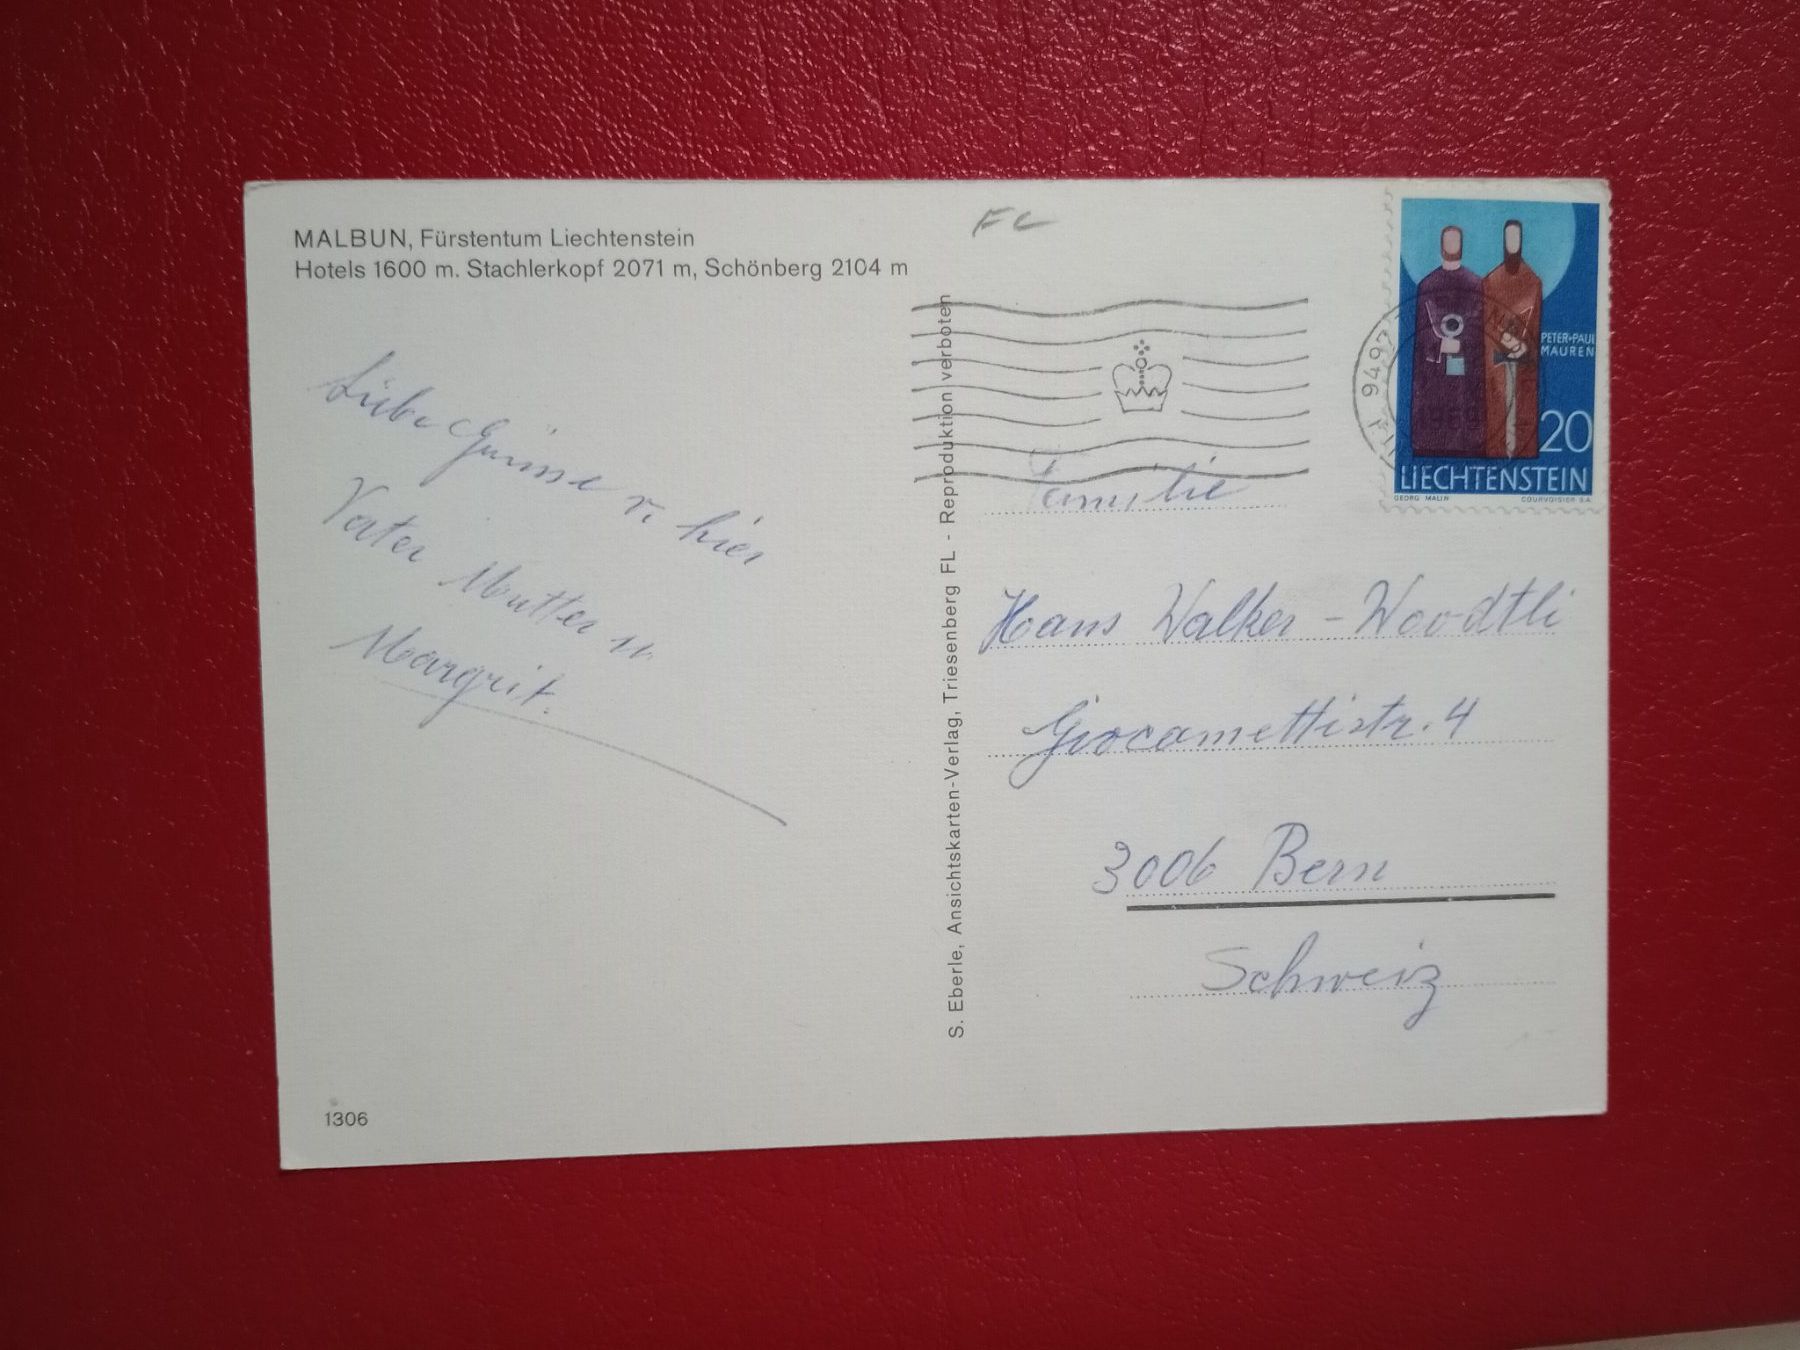 MALBUN, Fürstentum Liechtenstein
Hotels 1600 m. Stachlerkopf 2071 m, Schönberg 2104 m
Liebe Grüsse v. hier
Vater Mutter u.
Margrit.
1306
S. Eberle, Ansichtskarten-Verlag, Triesenberg FL - Reproduktion verboten
FL
9497
1969
PETER+PAUL
MAUREN
20
LIECHTENSTEIN
GEORG MALIN COURVOISIER S.A.
Familie
Hans Walker - Woodtli
Giacomettistr. 4
3006 Bern
Schweiz